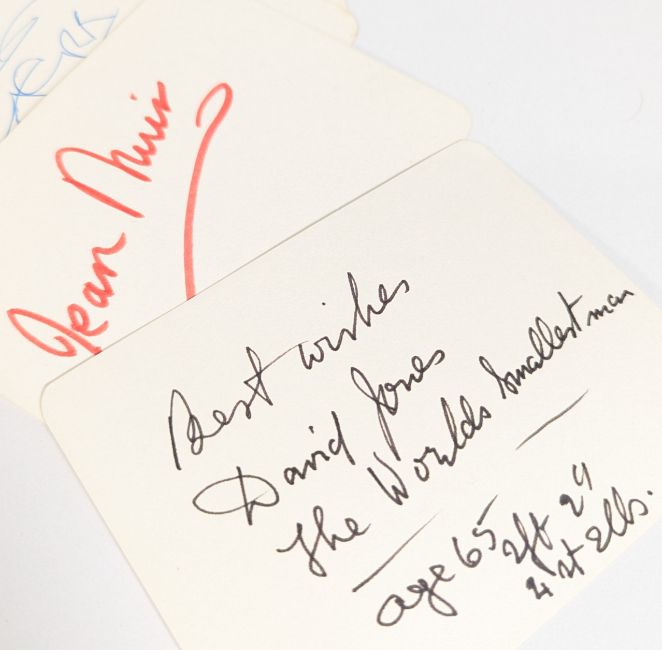 Jean Muir
Best wishes
David Jones
The Worlds Smallest man
age 65 2ft 2"
4 st 2lbs.